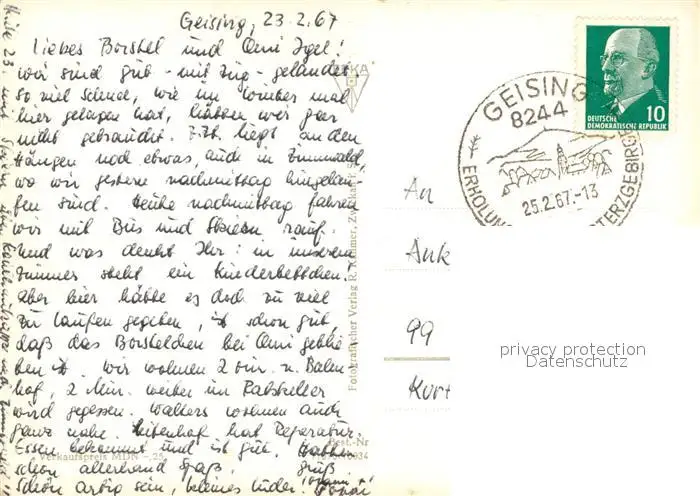 Geising, 23.2.67
Liebes Borstel und Omi Igel!
wir sind gut - mit Zug - gelandet.
so viel Schnee, wie im Sommer mal
hier gelegen hat, hätten wir gar
nicht gebraucht. Z.Zt. liegt an den
Hängen noch etwas, auch in Zinnwald,
wo wir gestern nachmittag hingelau-
fen sind. Heute nachmittag fahren
wir mit Bus und Skiern rauf.
Und was denkt Ihr: in unserem
Zimmer steht ein Kinderbettchen!
Aber hier hätte es doch zu viel
zu laufen gegeben, ist schon gut,
daß das Borstelchen bei Omi geblie
ben ist. Wir wohnen 2 Min. v. Bahn-
hof, 2 Min. weiter im Ratskeller
wird gegessen. Walters wohnen auch
ganz nahe. hat Reparatur.
Essen bekommt und ist gut.
schon allerhand Spaß. Gruß
schön artig sein, kleines Luder!
Verkaufspreis MDN -,25
Best.-Nr
Fotografischer Verlag R. Kallmer, Zwickau
GEISING
8244
ERHOLUN
OSTERZGEBIRGE
25.2.67.-13
DEUTSCHE
DEMOKRATISCHE REPUBLIK
10
An
99
privacy protection
Datenschutz